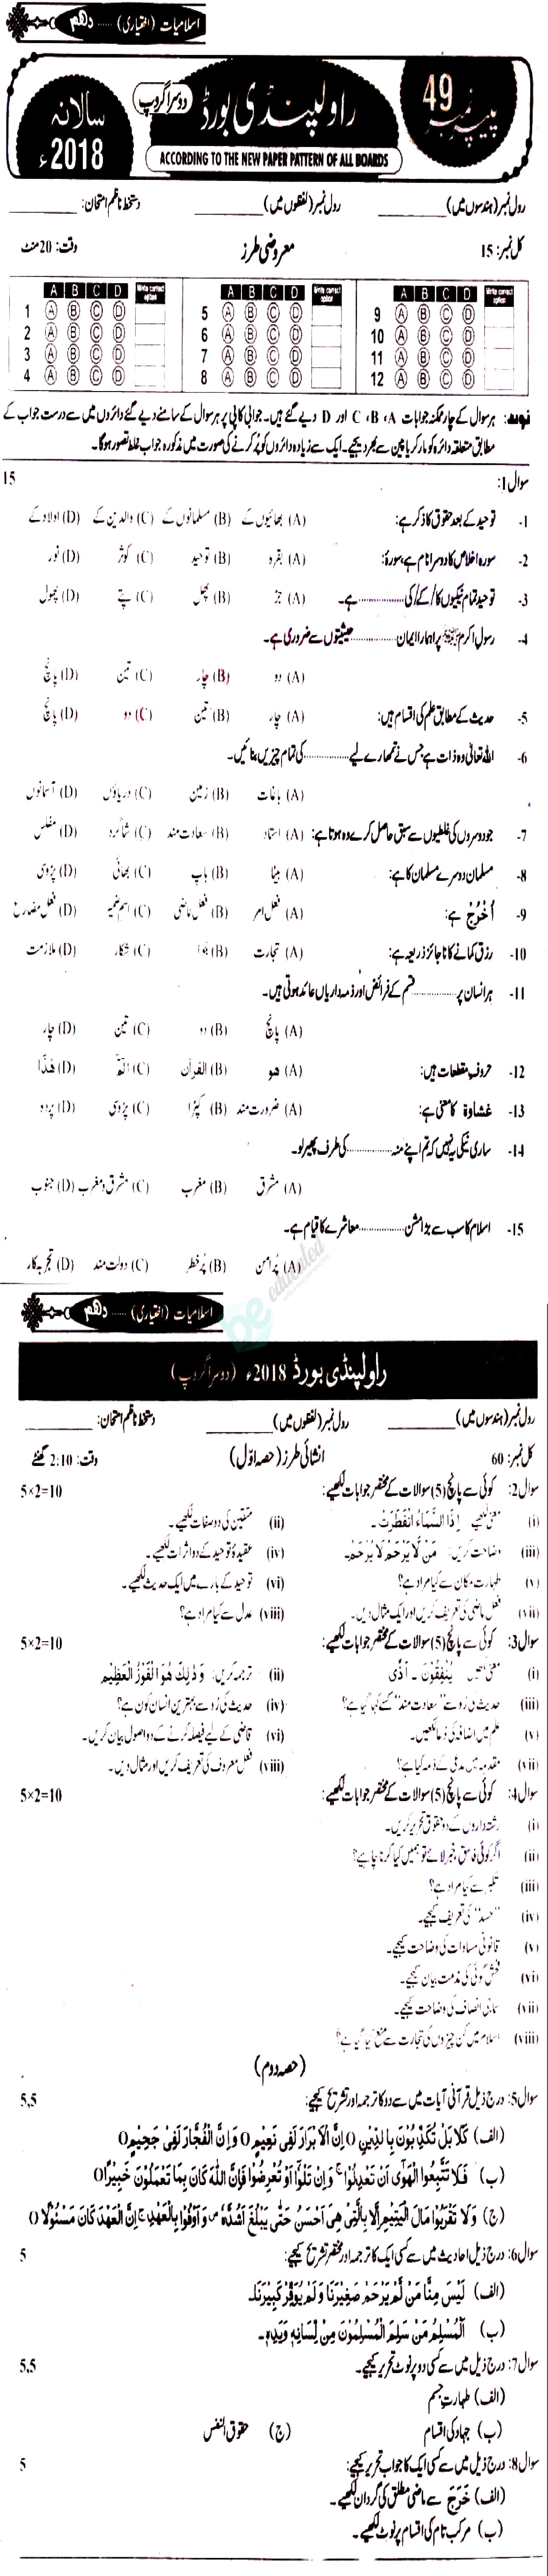 اسلامیات (اختیاری) ...... دھم
پیپر نمبر 49
راولپنڈی بورڈ
دوسرا گروپ
سالانہ 2018ء
ACCORDING TO THE NEW PAPER PATTERN OF ALL BOARDS
رول نمبر (ہندسوں میں) ________ رول نمبر (لفظوں میں) ________ دستخط ناظم امتحان: ________
کل نمبر: 15 معروضی طرز وقت: 20 منٹ
A B C D Write correct option A B C D Write correct option A B C D Write correct option
1 A B C D 5 A B C D 9 A B C D
2 A B C D 6 A B C D 10 A B C D
3 A B C D 7 A B C D 11 A B C D
4 A B C D 8 A B C D 12 A B C D
نوٹ: ہر سوال کے چار ممکنہ جوابات A، B، C اور D دیے گئے ہیں۔ جوابی کاپی پر ہر سوال کے سامنے دیے گئے دائروں میں سے درست جواب کے
مطابق متعلقہ دائرہ کو مارکر یا پین سے بھر دیجیے۔ ایک سے زیادہ دائروں کو پُر کرنے کی صورت میں مذکورہ جواب غلط تصور ہوگا۔
سوال 1: 15
1- توحید کے بعد حقوق کا ذکر ہے: (A) بھائیوں کے (B) مسلمانوں کے (C) والدین کے (D) اولاد کے
2- سورہ اخلاص کا دوسرا نام ہے، سورۃ: (A) بقرہ (B) توحید (C) کوثر (D) نور
3- توحید تمام نیکیوں کا/ کے/ کی ............ ہے۔ (A) جڑ (B) پھل (C) پتے (D) پھول
4- رسول اکرم ﷺ پر ہمارا ایمان ............ حیثیتوں سے ضروری ہے۔
(A) دو (B) چار (C) تین (D) پانچ
5- حدیث کے مطابق علم کی اقسام ہیں: (A) چار (B) تین (C) دو (D) پانچ
6- اللہ تعالیٰ وہ ذات ہے جس نے تمھارے لیے ............ کی تمام چیزیں بنائیں۔
(A) باغات (B) زمین (C) دریاؤں (D) آسمانوں
7- جو دوسروں کی غلطیوں سے سبق حاصل کرے وہ ہوتا ہے: (A) استاد (B) سعادت مند (C) شاگرد (D) مفلس
8- مسلمان دوسرے مسلمان کا ہے: (A) بیٹا (B) باپ (C) بھائی (D) پڑوی
9- اُخْرُجْ ہے: (A) فعل امر (B) فعل ماضی (C) اسم ضمیر (D) فعل مضارع
10- رزق کمانے کا ناجائز ذریعہ ہے: (A) تجارت (B) جُوا (C) شکار (D) ملازمت
11- ہر انسان پر ............ قسم کے فرائض اور ذمہ داریاں عائد ہوتی ہیں۔
(A) پانچ (B) دو (C) تین (D) چار
12- حروف مقطعات ہیں: (A) هو (B) القرآن (C) الٓمّٓ (D) هٰذَا
13- غشاوۃ کا معنی ہے: (A) ضرورت مند (B) کپڑا (C) پڑوی (D) پردہ
14- ساری نیکی یہ نہیں کہ تم اپنے منہ ............ کی طرف پھیر لو۔
(A) مشرق (B) مغرب (C) مشرق و مغرب (D) جنوب
15- اسلام کا سب سے بڑا مشن ............ معاشرے کا قیام ہے۔
(A) پُرامن (B) پُرخطر (C) دولت مند (D) تجربہ کار
be educated
اسلامیات (اختیاری) ...... دھم
راولپنڈی بورڈ 2018ء (دوسرا گروپ)
رول نمبر (ہندسوں میں) ________ رول نمبر (لفظوں میں) ________ دستخط ناظم امتحان: ________
کل نمبر: 60 انشائی طرز (حصہ اوّل) وقت: 2:10 گھنٹے
سوال 2: کوئی سے پانچ (5) سوالات کے مختصر جوابات لکھیے: 5×2=10
(i) معنی لکھیے اِذَا السَّمَاءُ انْفَطَرَتْ ۔ (ii) متقین کی دو صفات لکھیے۔
(iii) وضاحت کریں: مَنْ لَّا يَرْحَمُ لَا يُرْحَمُ۔ (iv) عقیدۂ توحید کے دو اثرات لکھیے۔
(v) طہارت مکان سے کیا مراد ہے؟ (vi) توحید کے بارے میں ایک حدیث لکھیے۔
(vii) فعل ماضی کی تعریف کریں اور ایک مثال دیں۔ (viii) عدل سے کیا مراد ہے؟
سوال 3: کوئی سے پانچ (5) سوالات کے مختصر جوابات لکھیے: 5×2=10
(i) معنی لکھیں يُنْفِقُوْنَ ۔ اَذًى (ii) ترجمہ کریں: وَ ذٰلِكَ هُوَ الْفَوْزُ الْعَظِيْمُ
(iii) حدیث کی رُو سے "سعادت مند" کسے کہا گیا ہے؟ (iv) حدیث کی رُو سے بہترین انسان کون ہے؟
(v) علم میں اضافہ کی دُعا لکھیں۔ (vi) قاضی کے لیے فیصلہ کرنے کے دو اصول بیان کریں۔
(vii) مقدمہ میں مدعی کے ذمہ کیا ہے؟ (viii) فعل معروف کی تعریف کریں اور مثال دیں۔
سوال 4: کوئی سے پانچ (5) سوالات کے مختصر جوابات لکھیے: 5×2=10
(i) رشتہ داروں کے دو حقوق تحریر کریں۔
(ii) اگر کوئی فاسق خبر لائے تو ہمیں کیا کرنا چاہیے؟
(iii) تکبر سے کیا مراد ہے؟
(iv) "حسد" کی تعریف کیجیے۔
(v) قانونی مساوات کی وضاحت کیجیے۔
(vi) فحش گوئی کی مذمت بیان کیجیے۔
(vii) سماجی انصاف کی وضاحت کیجیے۔
(viii) اسلام میں کن چیزوں کی تجارت سے منع کیا گیا ہے؟
(حصہ دوم)
سوال 5: درج ذیل قرآنی آیات میں سے دو کا ترجمہ اور تشریح کیجیے: 5,5
(الف) كَلَّا بَلْ تُكَذِّبُوْنَ بِالدِّيْنِ O اِنَّ الْاَبْرَارَ لَفِيْ نَعِيْمٍ O وَ اِنَّ الْفُجَّارَ لَفِيْ جَحِيْمٍ O
(ب) فَلَا تَتَّبِعُوا الْهَوٰى اَنْ تَعْدِلُوْا ۚ وَ اِنْ تَلْوٗا اَوْ تُعْرِضُوْا فَاِنَّ اللّٰهَ كَانَ بِمَا تَعْمَلُوْنَ خَبِيْرًا O
(ج) وَ لَا تَقْرَبُوْا مَالَ الْيَتِيْمِ اِلَّا بِالَّتِيْ هِيَ اَحْسَنُ حَتّٰى يَبْلُغَ اَشُدَّهٗ ص وَ اَوْفُوْا بِالْعَهْدِ ج اِنَّ الْعَهْدَ كَانَ مَسْئُوْلًا O
سوال 6: درج ذیل احادیث میں سے کسی ایک کا ترجمہ اور مختصر تشریح کیجیے: 5
(الف) لَيْسَ مِنَّا مَنْ لَّمْ يَرْحَمْ صَغِيْرَنَا وَ لَمْ يُوَقِّرْ كَبِيْرَنَا۔
(ب) اَلْمُسْلِمُ مَنْ سَلِمَ الْمُسْلِمُوْنَ مِنْ لِّسَانِهٖ وَ يَدِهٖ۔
سوال 7: درج ذیل میں سے کسی دو پر نوٹ تحریر کیجیے۔ 5,5
(الف) طہارت جسم
(ب) جہاد کی اقسام (ج) حقوق النفس
سوال 8: درج ذیل میں سے کسی ایک کا جواب تحریر کیجیے: 5
(الف) خَرَجَ سے ماضی مطلق کی گردان لکھیے۔
(ب) مرکب تام کی اقسام پر نوٹ لکھیے۔